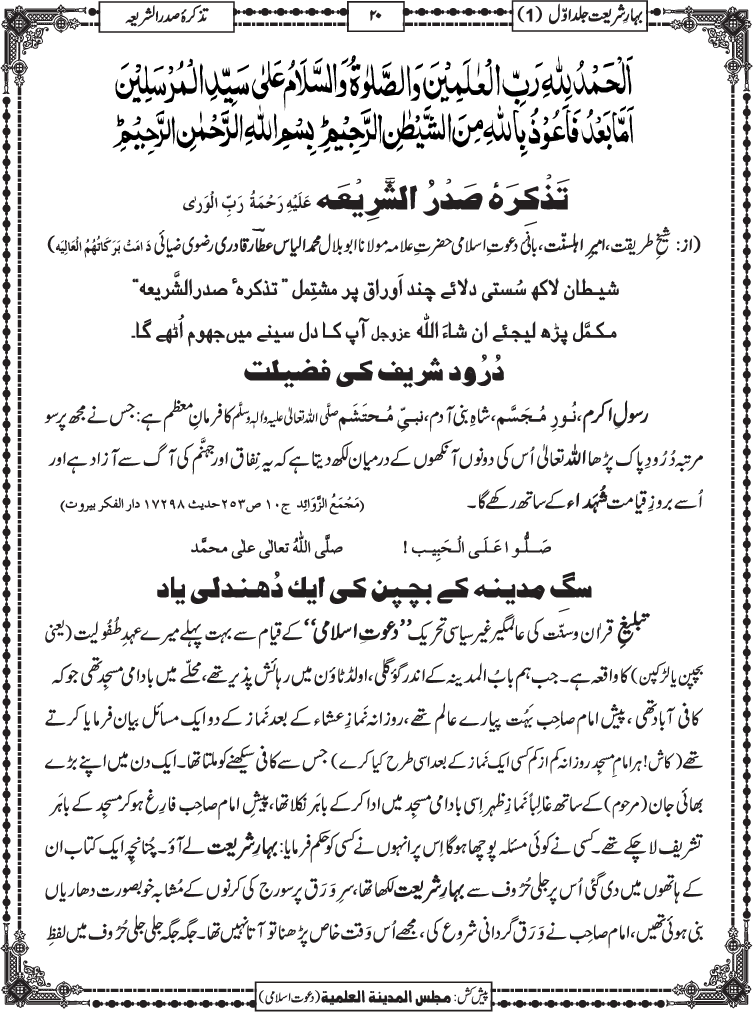 بہارِ شریعت جلد اوّل (1)
۲۰
تذکرۂ صدر الشریعہ
اَلْحَمْدُ لِلّٰہِ رَبِّ الْعٰلَمِیْنَ وَالصَّلٰوۃُ وَالسَّلَامُ عَلٰی سَیِّدِ الْمُرْسَلِیْنَ
اَمَّا بَعْدُ فَاَعُوْذُ بِاللّٰہِ مِنَ الشَّیْطٰنِ الرَّجِیْمِ ؕ بِسْمِ اللّٰہِ الرَّحْمٰنِ الرَّحِیْمِ ؕ
تَذْکرَہٗ صَدْرُ الشَّرِیْعَہ عَلَیْہِ رَحْمَۃُ رَبِّ الْوَرٰی
(از: شیخِ طریقت، امیرِ اہلسنّت، بانیٔ دعوتِ اسلامی حضرت علامہ مولانا ابو بلال محمد الیاس عطّار قادری رضوی ضیائی دَامَتْ بَرَکَاتُہُمُ الْعَالِیَہ)
شیطان لاکھ سُستی دلائے چند اَوراق پر مشتمل ”تذکرہٗ صدر الشَّریعہ“
مکمَّل پڑھ لیجئے ان شاءَ اللہ عزوجل آپ کا دل سینے میں جھوم اُٹھے گا۔
دُرُود شریف کی فضیلت
رسولِ اکرم، نُورِ مُجَسَّم، شاہِ بنی آدم، نبیِّ مُحتَشَم صلَّی اللہ تعالیٰ علیہ واٰلہٖ وسلَّم کا فرمانِ معظم ہے: جس نے مجھ پر سو
مرتبہ دُرُودِ پاک پڑھا اللہ تعالیٰ اُس کی دونوں آنکھوں کے درمیان لکھ دیتا ہے کہ یہ نِفاق اور جہنَّم کی آگ سے آزاد ہے اور
اُسے بروزِ قیامت شُہَداء کے ساتھ رکھے گا۔ (مَجْمَعُ الزَّوَائِد ج۱۰ ص۲۵۳ حدیث ۱۷۲۹۸ دار الفکر بیروت)
صَلُّوا عَلَی الْحَبِیب ! صلَّی اللّٰہُ تعالٰی علٰی محمَّد
سگِ مدینہ کے بچپن کی ایک دُھندلی یاد
تبلیغِ قراٰن وسنّت کی عالمگیر غیر سیاسی تحریک ”دعوتِ اسلامی“ کے قیام سے بہت پہلے میرے عہدِ طُفُولیت (یعنی
بچپن یا لڑکپن) کا واقعہ ہے۔ جب ہم بابُ المدینہ کے اندر گؤ گلی، اولڈ ٹاؤن میں رہائش پذیر تھے، محلّے میں بادامی مسجِد تھی جو کہ
کافی آباد تھی، پیش امام صاحِب بَہُت پیارے عالم تھے، روزانہ نَمازِ عشاء کے بعد نَماز کے دو ایک مسائل بیان فرمایا کرتے
تھے (کاش! ہر امامِ مسجِد روزانہ کم از کم کسی ایک نَماز کے بعد اسی طرح کیا کرے) جس سے کافی سیکھنے کو ملتا تھا۔ ایک دن میں اپنے بڑے
بھائی جان (مرحوم) کے ساتھ غالِباً نَمازِ ظہر اِسی بادامی مسجِد میں ادا کر کے باہَر نکلا تھا، پیش امام صاحِب فارِغ ہو کر مسجِد کے باہَر
تشریف لا چکے تھے۔ کسی نے کوئی مسئلہ پوچھا ہوگا اِس پر انہوں نے کسی کو حکم فرمایا: بہارِ شریعت لے آؤ۔ چُنانچِہ ایک کتاب ان
کے ہاتھوں میں دی گئی اُس پر جلی حُرُوف سے بہارِ شریعت لکھا تھا، سرِ وَرَق پر سورج کی کرنوں کے مُشابہ خوبصورت دھاریاں
بنی ہوئی تھیں، امام صاحِب نے وَرَق گردانی شروع کی، مجھے اُس وَقت خاص پڑھنا تو آتا نہیں تھا۔ جگہ جگہ جلی جلی حُرُوف میں لفظِ
پیش کش: مجلس المدینۃ العلمیۃ (دعوتِ اسلامی)